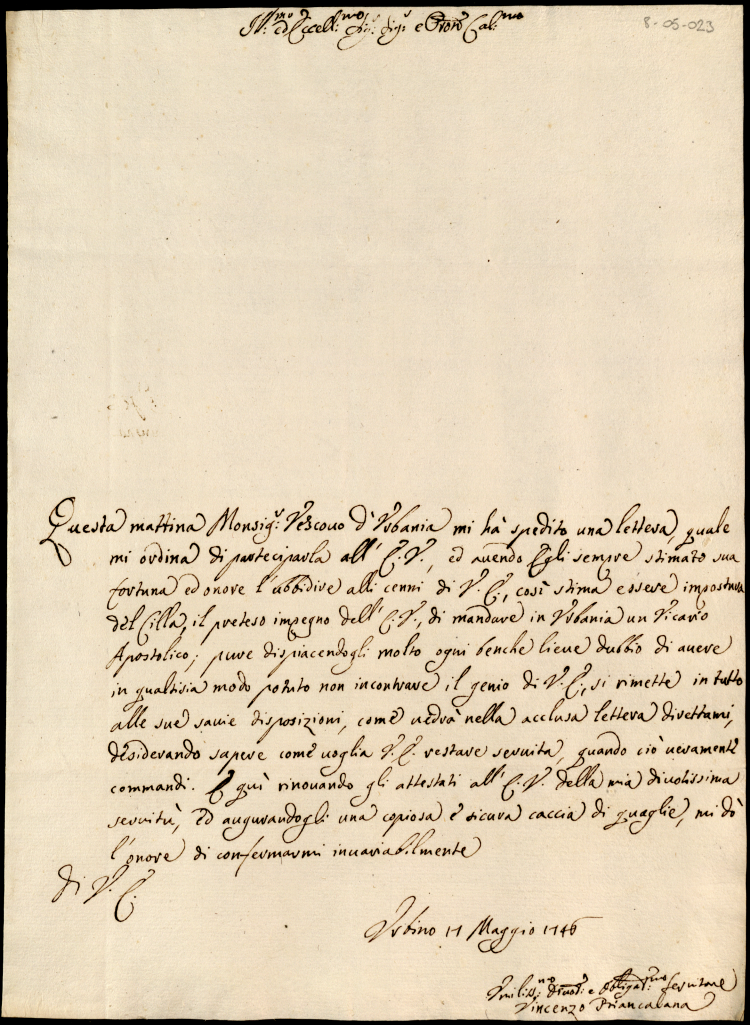 8-05-023
Ill:mo ed Eccell:mo Sig: Sig: e Pron Col:mo
Questa mattina Monsig: Vescovo d'Urbania mi hà spedito una lettera, quale
mi ordina di participarla all' E.V., ed avendo Egli sempre stimato sua
fortuna ed onore l'ubbidire alli cenni di V.E., così stima essere impostura
del Cilla, il preteso impegno dell' E.V., di mandare in Urbania un Vicario
Apostolico; pure dispiacendogli molto ogni benche lieve dubbio di avere
in qualsisia modo potuto non incontrare il genio di V.E., si rimette in tutto
alle sue savie disposizioni, come vedrà nella acclusa lettera direttami,
desiderando sapere come voglia V.E. restare servita, quando ciò veramente
commandi. E quì rinovando gli attestati all' E.V. della mia divotissima
servitù, ed augurandogli una copiosa e sicura caccia di quaglie, mi dò
l'onore di confermarmi invariabilmente
di V.E.
Urbino 17 Maggio 1746
Umiliss:mo Divot: e Obligat:mo Servitore
Vincenzo Brancalana